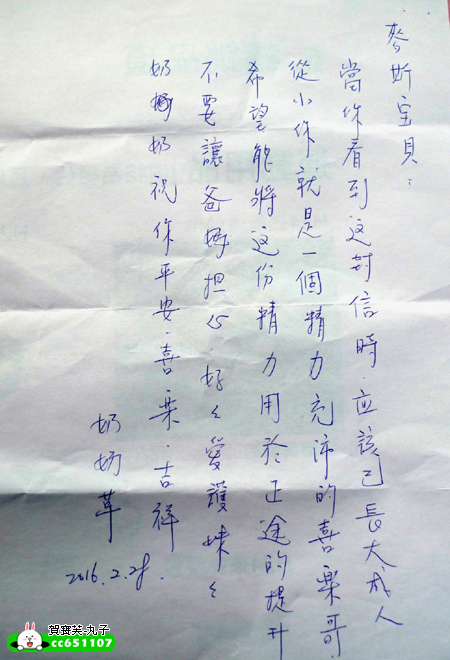 麥斯宝贝：
當你看到这封信時.应该已長大成人
從小你就是一個精力充沛的喜樂哥
希望能將这份精力用於正途的提升
不要讓爸媽担心.好々愛護妹々
奶奶祝你平安.喜樂.吉祥
奶奶草
2016.2.28.
賀寶芙-丸子
cc651107